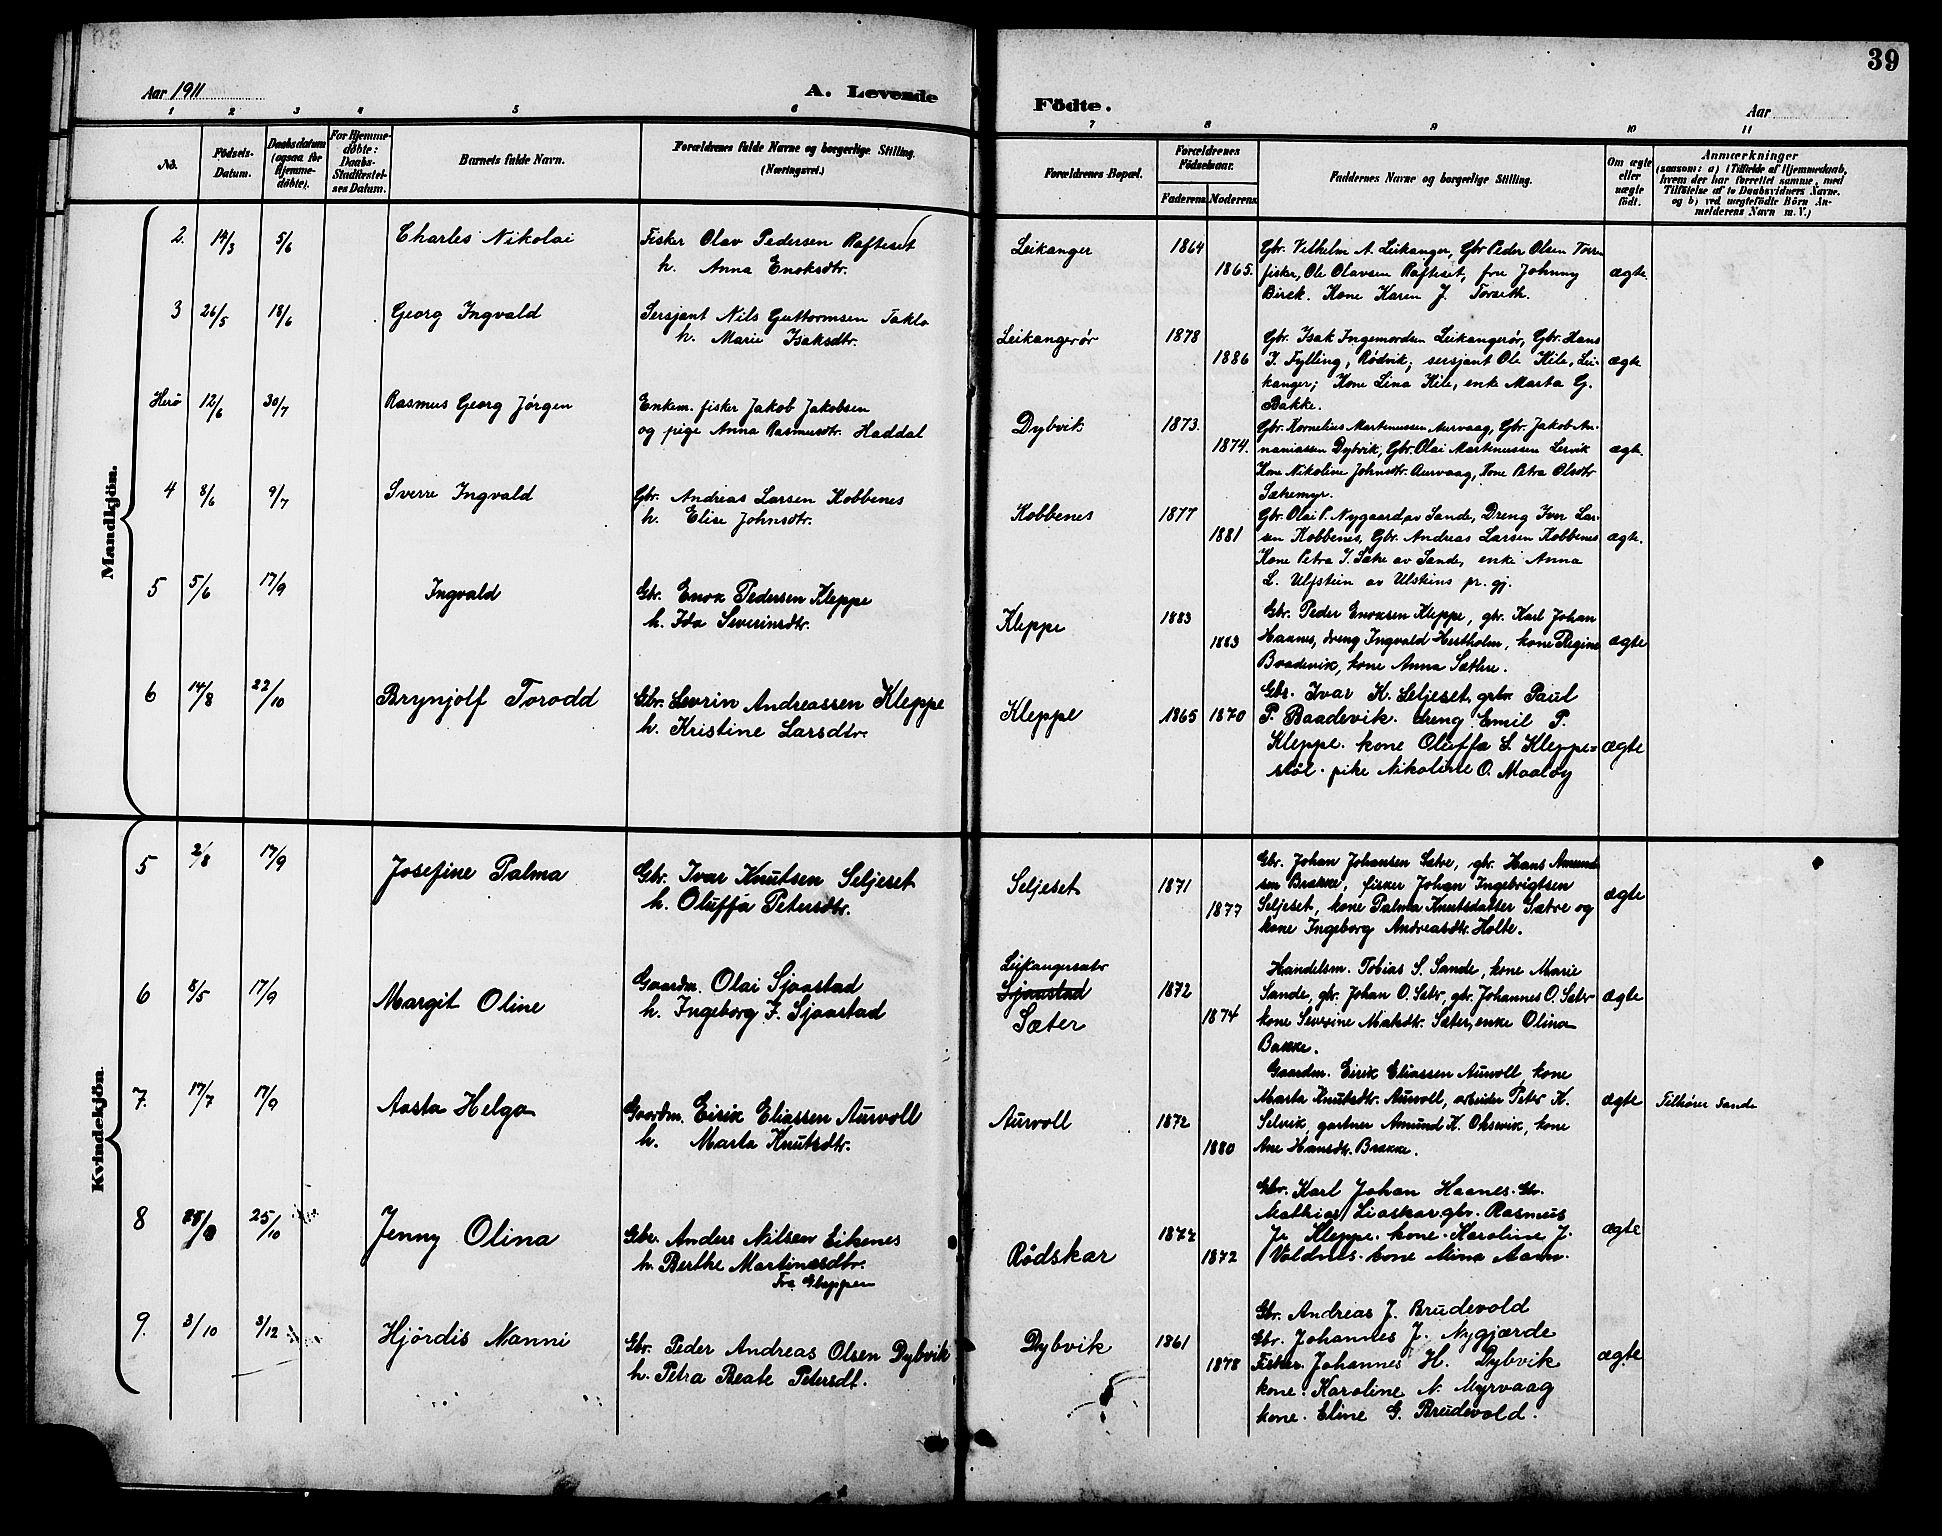 39
Aar 1911
A. Levende
Födte.
Aar
1 2 3 4 5 6 7 8 9 10 11
No.
Födsels-Datum.
Daabsdatum (ogsaa for Hjemme-døbte).
For Hjemme-døbte: Daabs-Stadfæstel-ses Datum.
Barnets fulde Navn.
Forældrenes fulde Navne og borgerlige Stilling. (Næringsvei.)
Forældrenes Bopæl.
Forældrenes Födselsaar.
Faderens Moderens
Faddernes Navne og borgerlige Stilling.
Om ægte eller uægte födt.
Anmærkninger
(saasom: a) i Tilfælde af Hjemmedaab, hvem der har forrettet samme, med Tilföielse af to Daabsvidners Navne. og b) ved uægtefödte Börn Anmelderens Navn m. V.)
Mandkjön.
2. 14/3 5/6 Charles Nikolai
Fisker Olav Pedersen Rafteset
h. Anna Enoksdtr.
Leikanger 1864 1865.
Gbr. Vilhelm A. Leikanger, Gbr Peder Olsen
fisker, Ole Olavsen Rafteset, fru Johnny
Birck. Kone Karen J. Torseth.
ægte.
3 26/5 18/6 Georg Ingvald
Sersjant Nils Guttormsen Taklo
h. Marie Isaksdtr.
Leikangerør 1878 1886
Gbr. Isak Ingemordsen Leikangerör, Gbr. Hans
J. Fylling, Rødvik; sersjant Ole Kile, Lei-
kanger; Kone Lina Kile, enke Marta G.
Bakke.
ægte
Herö 12/6 30/7 Rasmus Georg Jórgen
Enkem. fisker Jakob Jakobsen
og pige Anna Rasmusdtr. Haddal
Dybvik 1873. 1874.
Gbr. Kornelius Martinussen Aurvaag, Gbr. Jakob An-
naniassen Dybvik, Gbr. Olai Martinussen Lervik
Kone Nikoline Johnsdtr. Aurvaag, Kone Petra Olsdtr
Sætremyr.
ægte.
4 8/6 9/7 Sverre Ingvald
Gbr. Andreas Larsen Kobbenes
h. Elise Johnsdtr.
Kobbenes 1877 1881
Gbr. Olai P. Nygaard av Sande, Dreng Iver Lar-
sen Kobbenes, Gbr. Andreas Larsen Kobbenes
Kone Petra J. Sætre av Sande, enke Anna
L. Ulfstein av Ulsteins pr. gj.
ægte.
5 5/6 17/9 Ingvald
Gbr. Enok Pedersen Kleppe
h. Ida Severinsdtr.
Kleppe 1883 1883
Gbr. Peder Enoksen Kleppe, gbr. Karl Johan
Haanes, dreng Ingvald Hestholm, kone Regine
Baadevik, kone Anna Sæthre.
ægte
6 14/8 22/10 Brynjolf Torodd
Gbr. Severin Andreassen Kleppe
h. Kristine Larsdtr.
Kleppe 1865 1870
Gbr. Ivar K. Seljeset, gbr. Paul
P. Baadevik. dreng Emil P.
Kleppe. kone Oluffa S. Kleppe=
støl. pike Nikoline O. Maaløy
ægte
Kvindekjön.
5 2/8 17/9 Josefine Palma
Gbr. Ivar Knutsen Seljeset
h. Oluffa Petersdtr.
Seljeset 1871 1877
Gbr. Johan Johansen Sætre, gbr. Hans Amund
sen Brekke, fisker Johan Ingebrigtsen
Seljeset, kone Palma Knutsdatter Sætre og
kone Ingeborg Andreasdtr. Holte.
ægte
6 8/5 17/9 Margit Oline
Gaardm. Olai Sjaastad
h. Ingeborg J. Sjaastad
Leikangersætr
Sjaastad
Sæter 1872 1874
Handelsm. Tobias S. Sande, kone Marie
Sande, gbr. Johan O. Sætr, gbr. Johannes O. Sæter
kone Severine Matsdtr. Sæter, enke Olina
Bakke.
ægte
7. 17/7 17/9 Aasta Helga
Gaardm. Eirik Eliassen Aurvoll
h. Marta Knutsdtr.
Aurvoll 1872 1880
Gaardm. Eirik Eliassen Aurvoll, kone
Marta Knutsdtr. Aurvoll, arbeider Peter K.
Selvik, gartner Amund K. Oksvik, kone
Ane Hansdtr. Brekke.
ægte Tilhører Sande
8 25/10 Jenny Olina
Gbr. Anders Nilsen Eikenes
h. Berthe Martinusdtr.
Fra Gloppen
Rødskar 1872 1872
Gbr. Karl Johan Haanes. Gbr.
Mathias Liaskar gbr. Rasmus
Jr Kleppe. kone Karoline J.
Voldnes. kone Mina Aam.
ægte
9. 3/10 3/12 Hjördis Nanni
Gbr. Peder Andreas Olsen Dybvik
h. Petra Beate Petersdt.
Dybvik 1861 1878
Gbr. Andreas J. Brudevold
Gbr. Johannes J. Nygjærde
Fisker. Johannes H. Dybvik
kone. Karoline N. Myrvaag
kone. Eline G. Brudevold.
ægte